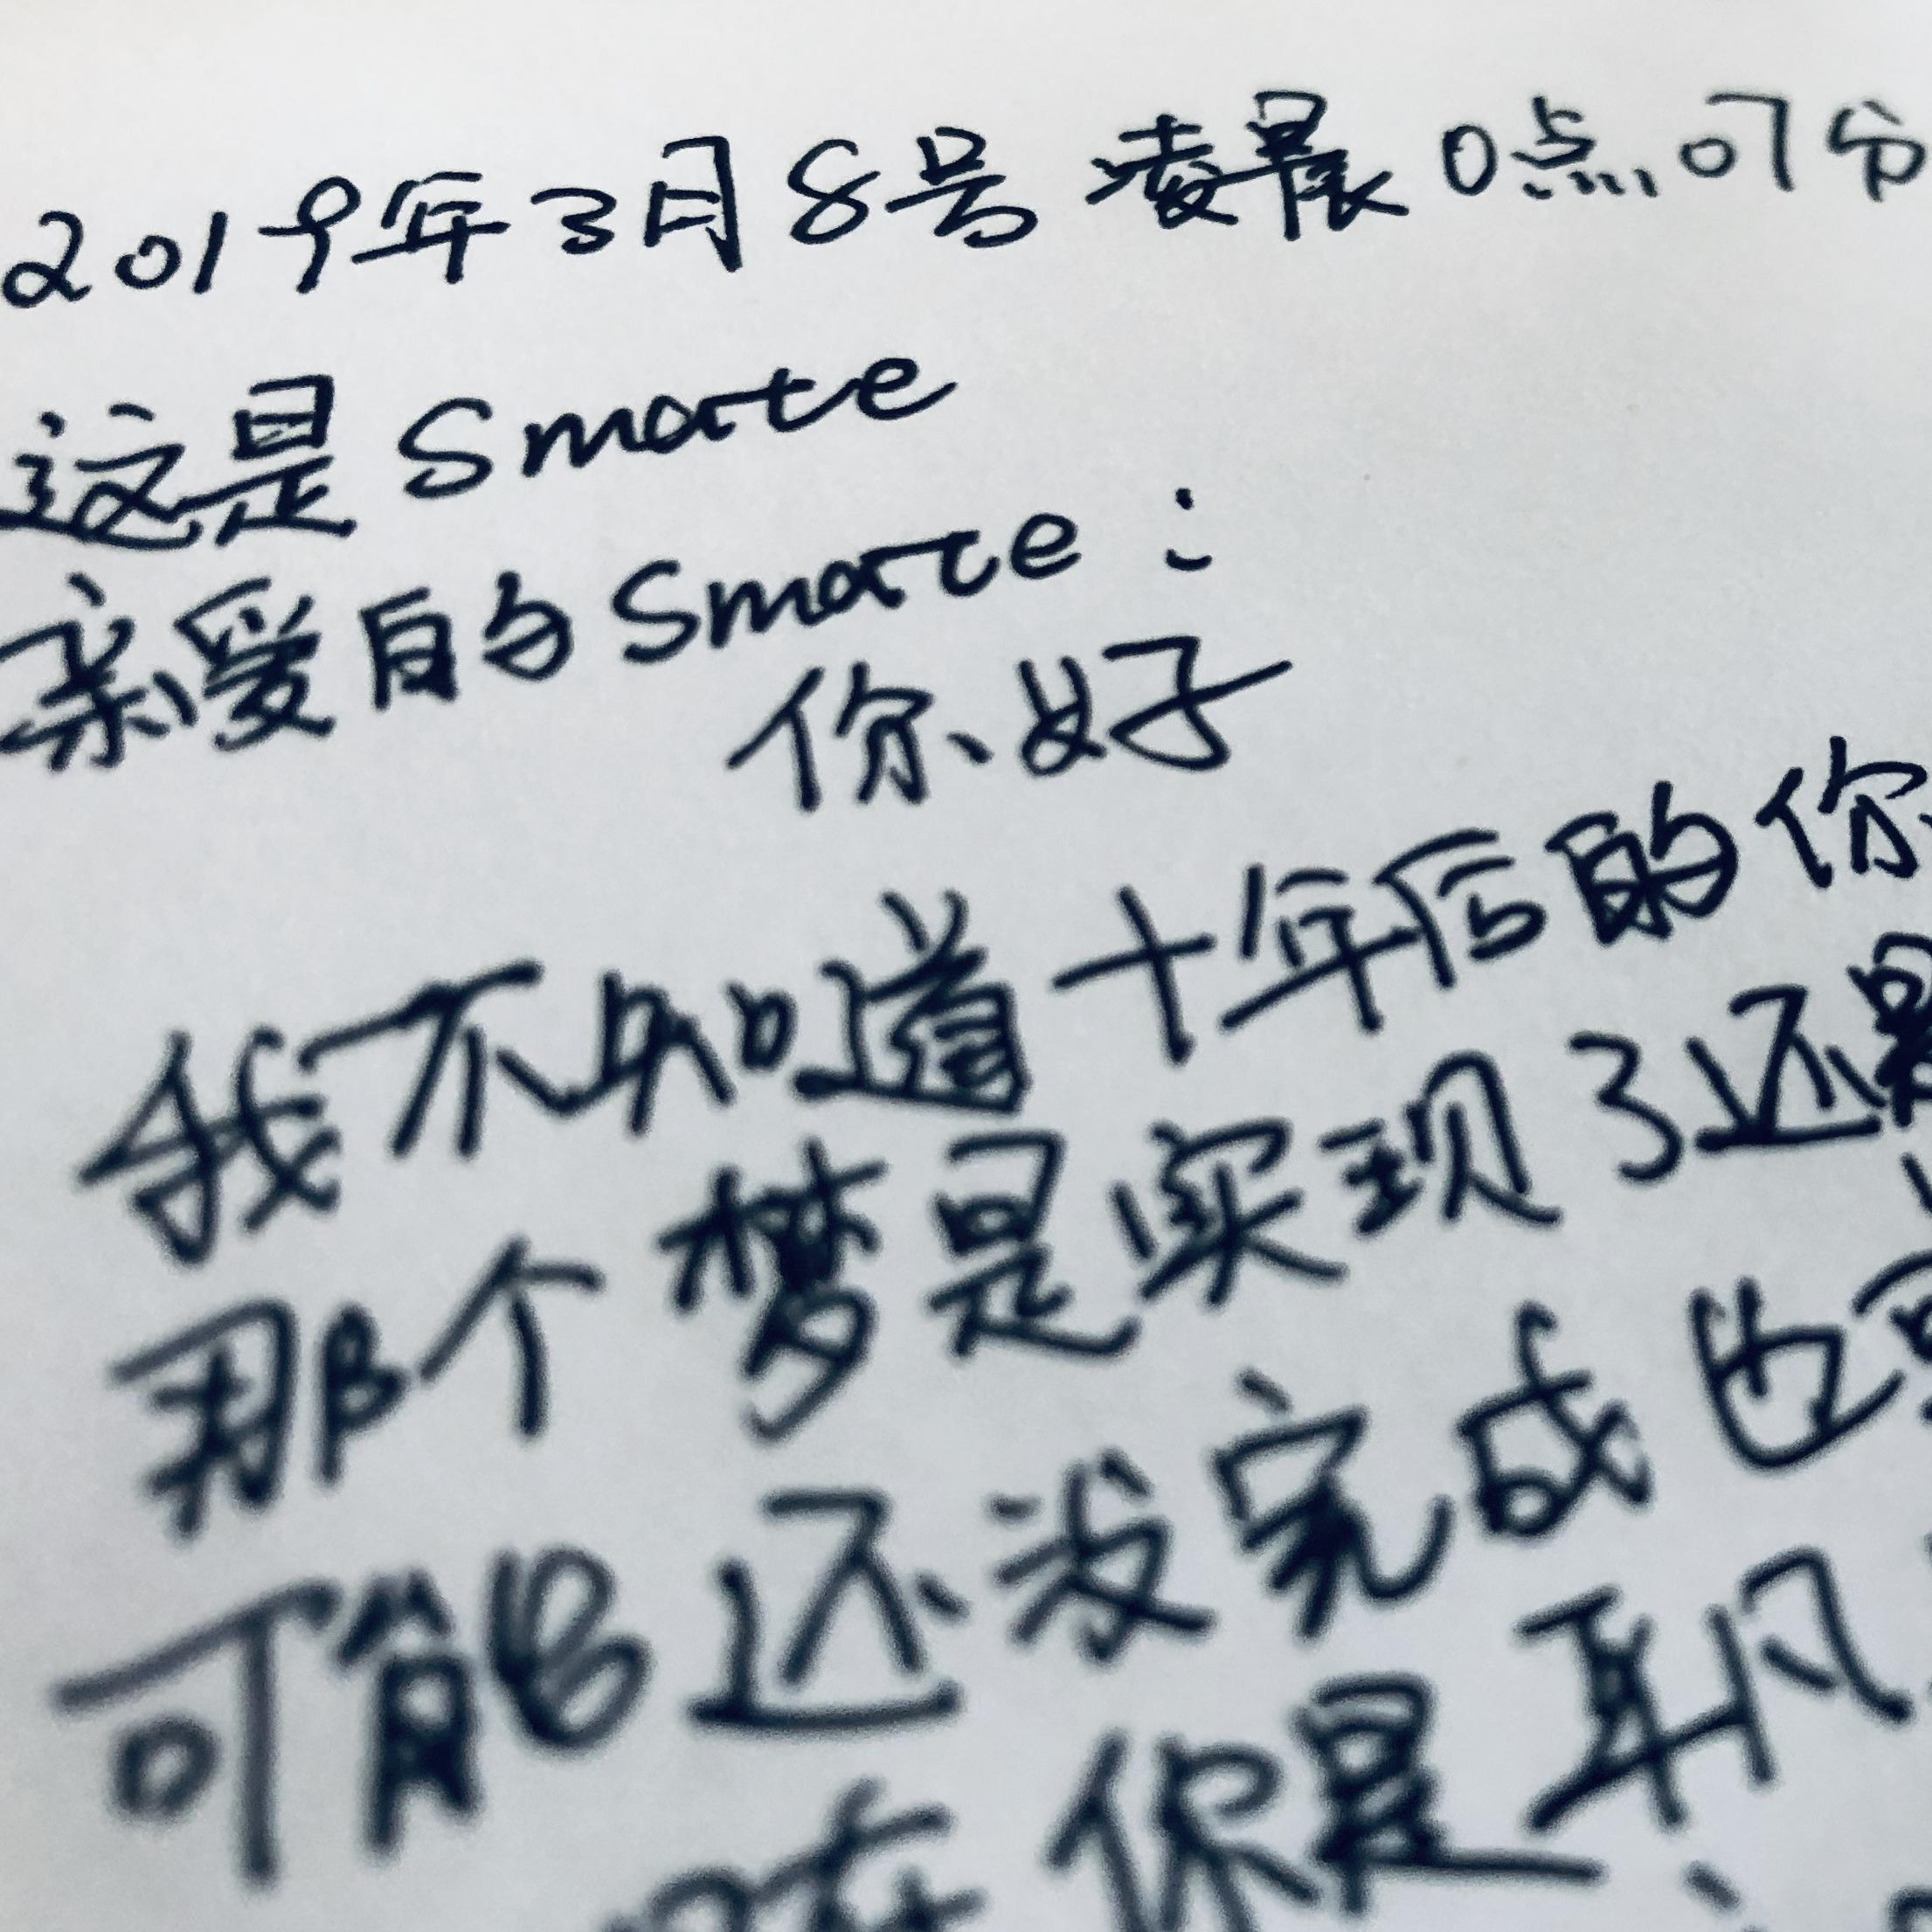 2019年3月8号 凌晨 0点07分
这是 Smarte
亲爱的 Smarte：
你好
我不知道十年后的你
那个梦是实现了还是
可能还没完成也
你是